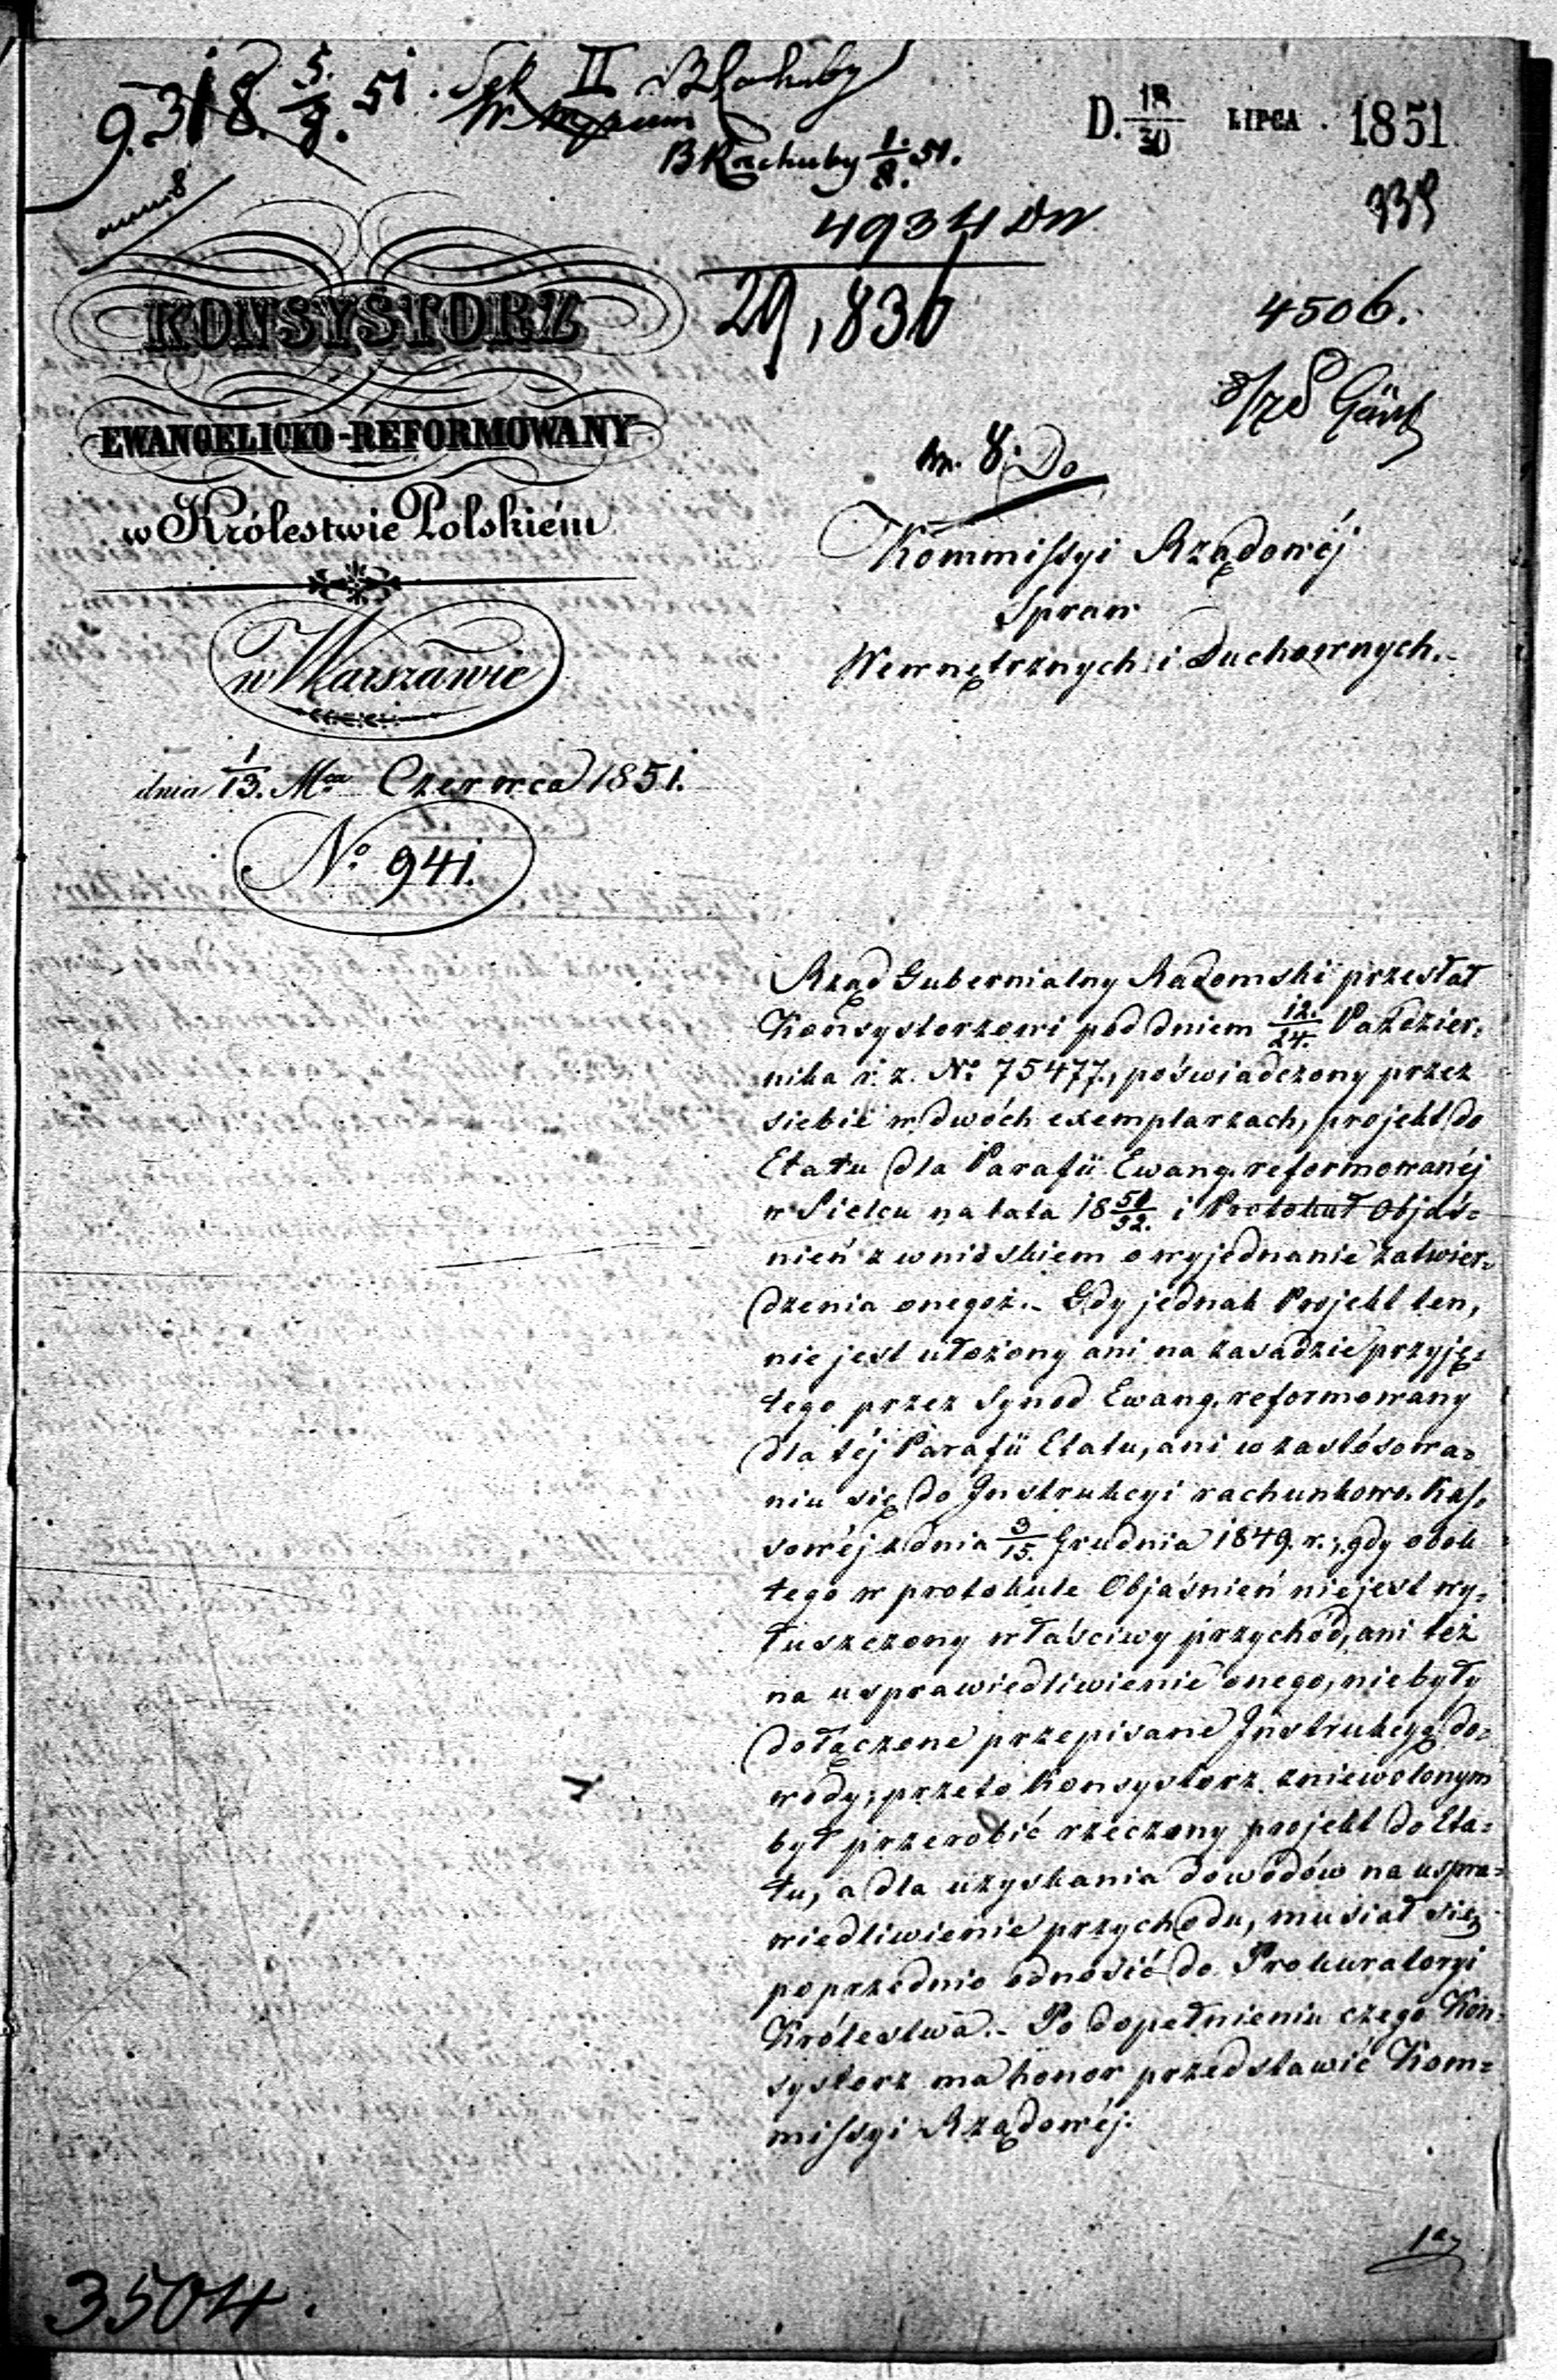 9.318. 5/8. 51. Sek II
B Rachuby 1/8. 51.
D. 18/30 LIPCA . 1851
335
4934 DW
29,836
4506.
KONSYSTORZ
EWANGELICKO-REFORMOWANY
w Królestwie Polskiém
w Warszawie
dnia 1/13. Mca Czerwca 1851.
No 941.
Do
Kommissyi Rządowéj
Spraw
Wewnętrznych i Duchownych.-
Rząd Gubernialny Radomski przesłał
Konsystorzowi pod dniem 12./24. Paździer-
nika r. z. No 75477., poświadczony przez
siebie w dwóch exemplarzach, projekt do
Etatu dla Parafii Ewang. reformowanéj
w Sielcu na lata 18 50/52. i Protokuł Objaś-
nień z wnioskiem o wyjednanie zatwier-
dzenia onegoż.- Gdy jednak Projekt ten,
nie jest ułożony ani na zasadzie przyję-
tego przez Synod Ewang. reformowany
dla téj Parafii Etatu, ani w zastósowa-
niu się do Instrukcyi rachunkowo. Kas-
sowéj z dnia 3/15. Grudnia 1849. r.; gdy obok
tego w protokule Objaśnień nie jest wy-
łuszczony właściwy przychód, ani też
na usprawiedliwienie onego, nie były
dołączone przepisane Instrukcyą do-
wody; przeto Konsystorz zniewolonym
był przerobić rzeczony projekt do Eta-
tu, a dla uzyskania dowodów na uspra-
wiedliwienie przychodu, musiał się
poprzednio odnosić do Prokuratoryi
Królestwa.- Po dopełnieniu czego Kon-
systorz ma honor przedstawić Kom-
missyi Rządowéj.
1a,
3504.